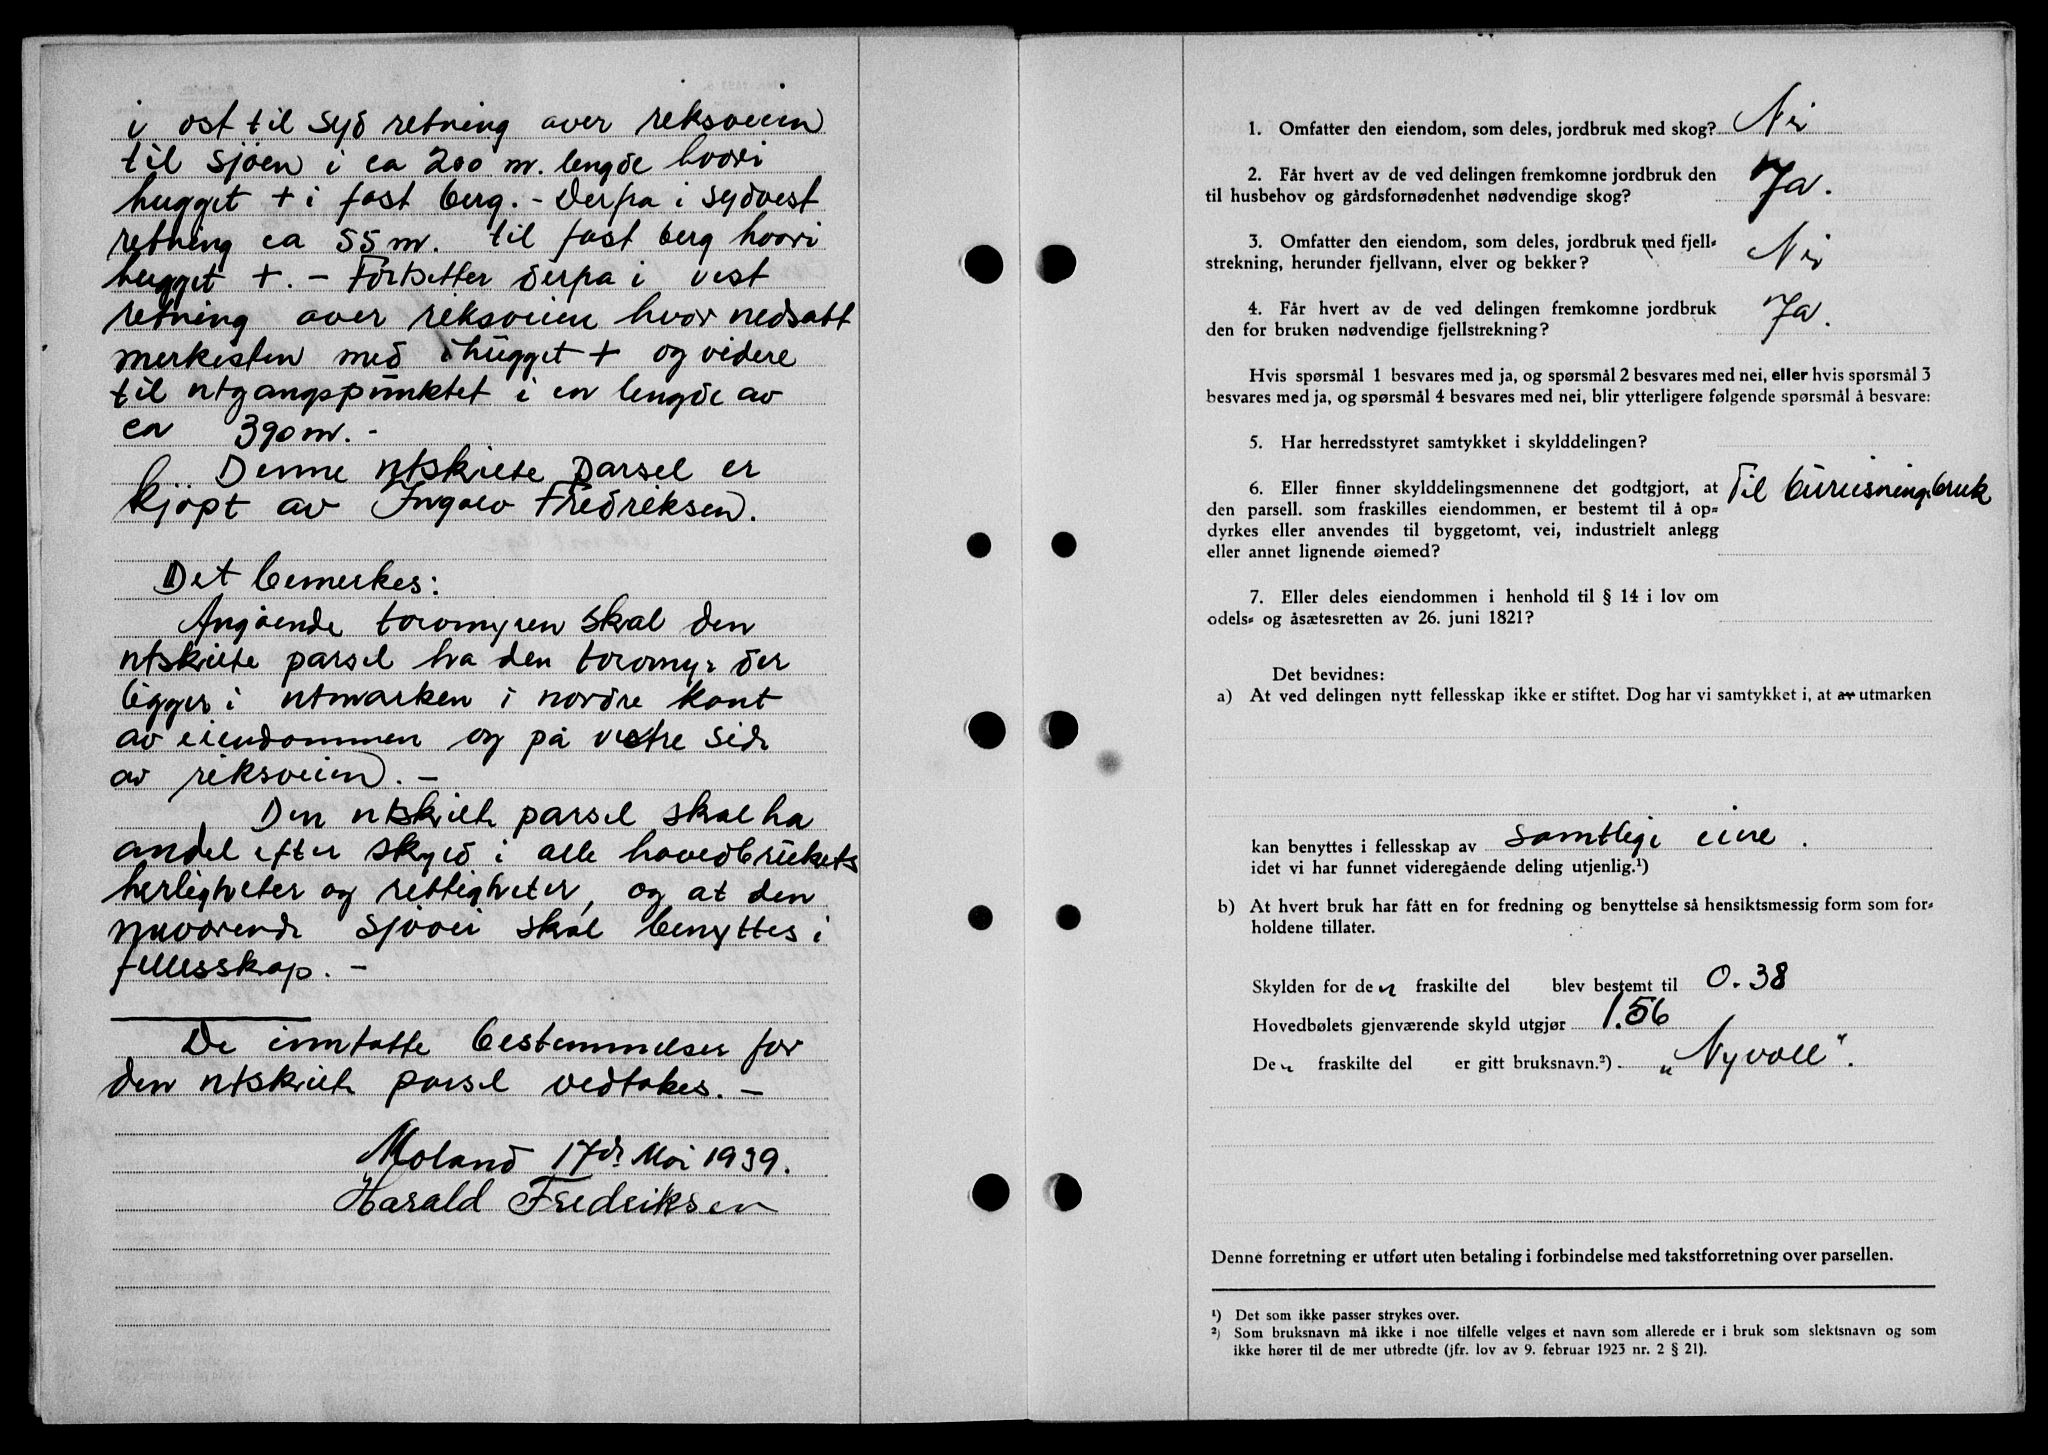 i ost til syd retning over riksveien
til sjøen i ca 200 m. lengde hvori
hugget + i fast berg. - Derpa i sydvest
retning ca 55 m. til fast berg hvori
hugget +. - Fortsetter derpa i vest
retning over riksveien hvor nedsatt
merkesten med ihugget + og videre
til utgangspunktet i en lengde av
ca 390 m. -
Denne utskilte parsel er
kjøpt av Ingolv Fredriksen.
Det bemerkes:
Angående torvmyren skal den
utskilte parsel ha den torvmyr der
ligger i utmarken i nordre kant
av eiendommen og på vestre side
av riksveien. -
Den utskilte parsel skal ha
andel efter skyld i alle hovedbrukets
herligheter og rettigheter, og at den
nuværende sjøvei skal benyttes i
fellesskap. -
De inntatte bestemmelser for
den utskilte parsel vedtakes. -
Moland 17de Mai 1939.
Harald Fredriksen
1. Omfatter den eiendom, som deles, jordbruk med skog? Nei
2. Får hvert av de ved delingen fremkomne jordbruk den
til husbehov og gårdsfornødenhet nødvendige skog? Ja.
3. Omfatter den eiendom, som deles, jordbruk med fjell-
strekning, herunder fjellvann, elver og bekker? Nei
4. Får hvert av de ved delingen fremkomne jordbruk
den for bruken nødvendige fjellstrekning? Ja.
Hvis spørsmål 1 besvares med ja, og spørsmål 2 besvares med nei, eller hvis spørsmål 3
besvares med ja, og spørsmål 4 besvares med nei, blir ytterligere følgende spørsmål å besvare:
5. Har herredsstyret samtykket i skylddelingen?
6. Eller finner skylddelingsmennene det godtgjort, at Til bureisningsbruk
den parsell. som fraskilles eiendommen, er bestemt til å op-
dyrkes eller anvendes til byggetomt, vei, industrielt anlegg
eller annet lignende øiemed?
7. Eller deles eiendommen i henhold til § 14 i lov om
odels- og åsætesretten av 26. juni 1821?
Det bevidnes:
a) At ved delingen nytt fellesskap ikke er stiftet. Dog har vi samtykket i, at av utmarken
kan benyttes i fellesskap av samtlige eiere.
idet vi har funnet videregående deling utjenlig.¹)
b) At hvert bruk har fått en for fredning og benyttelse så hensiktsmessig form som for-
holdene tillater.
Skylden for den fraskilte del blev bestemt til 0.38
Hovedbølets gjenværende skyld utgjør 1.56
Den fraskilte del er gitt bruksnavn.²) „Nyvoll".
Denne forretning er utført uten betaling i forbindelse med takstforretning over parsellen.
¹) Det som ikke passer strykes over.
²) Som bruksnavn må ikke i noe tilfelle velges et navn som allerede er i bruk som slektsnavn og som
ikke hører til de mer utbredte (jfr. lov av 9. februar 1923 nr. 2 § 21).